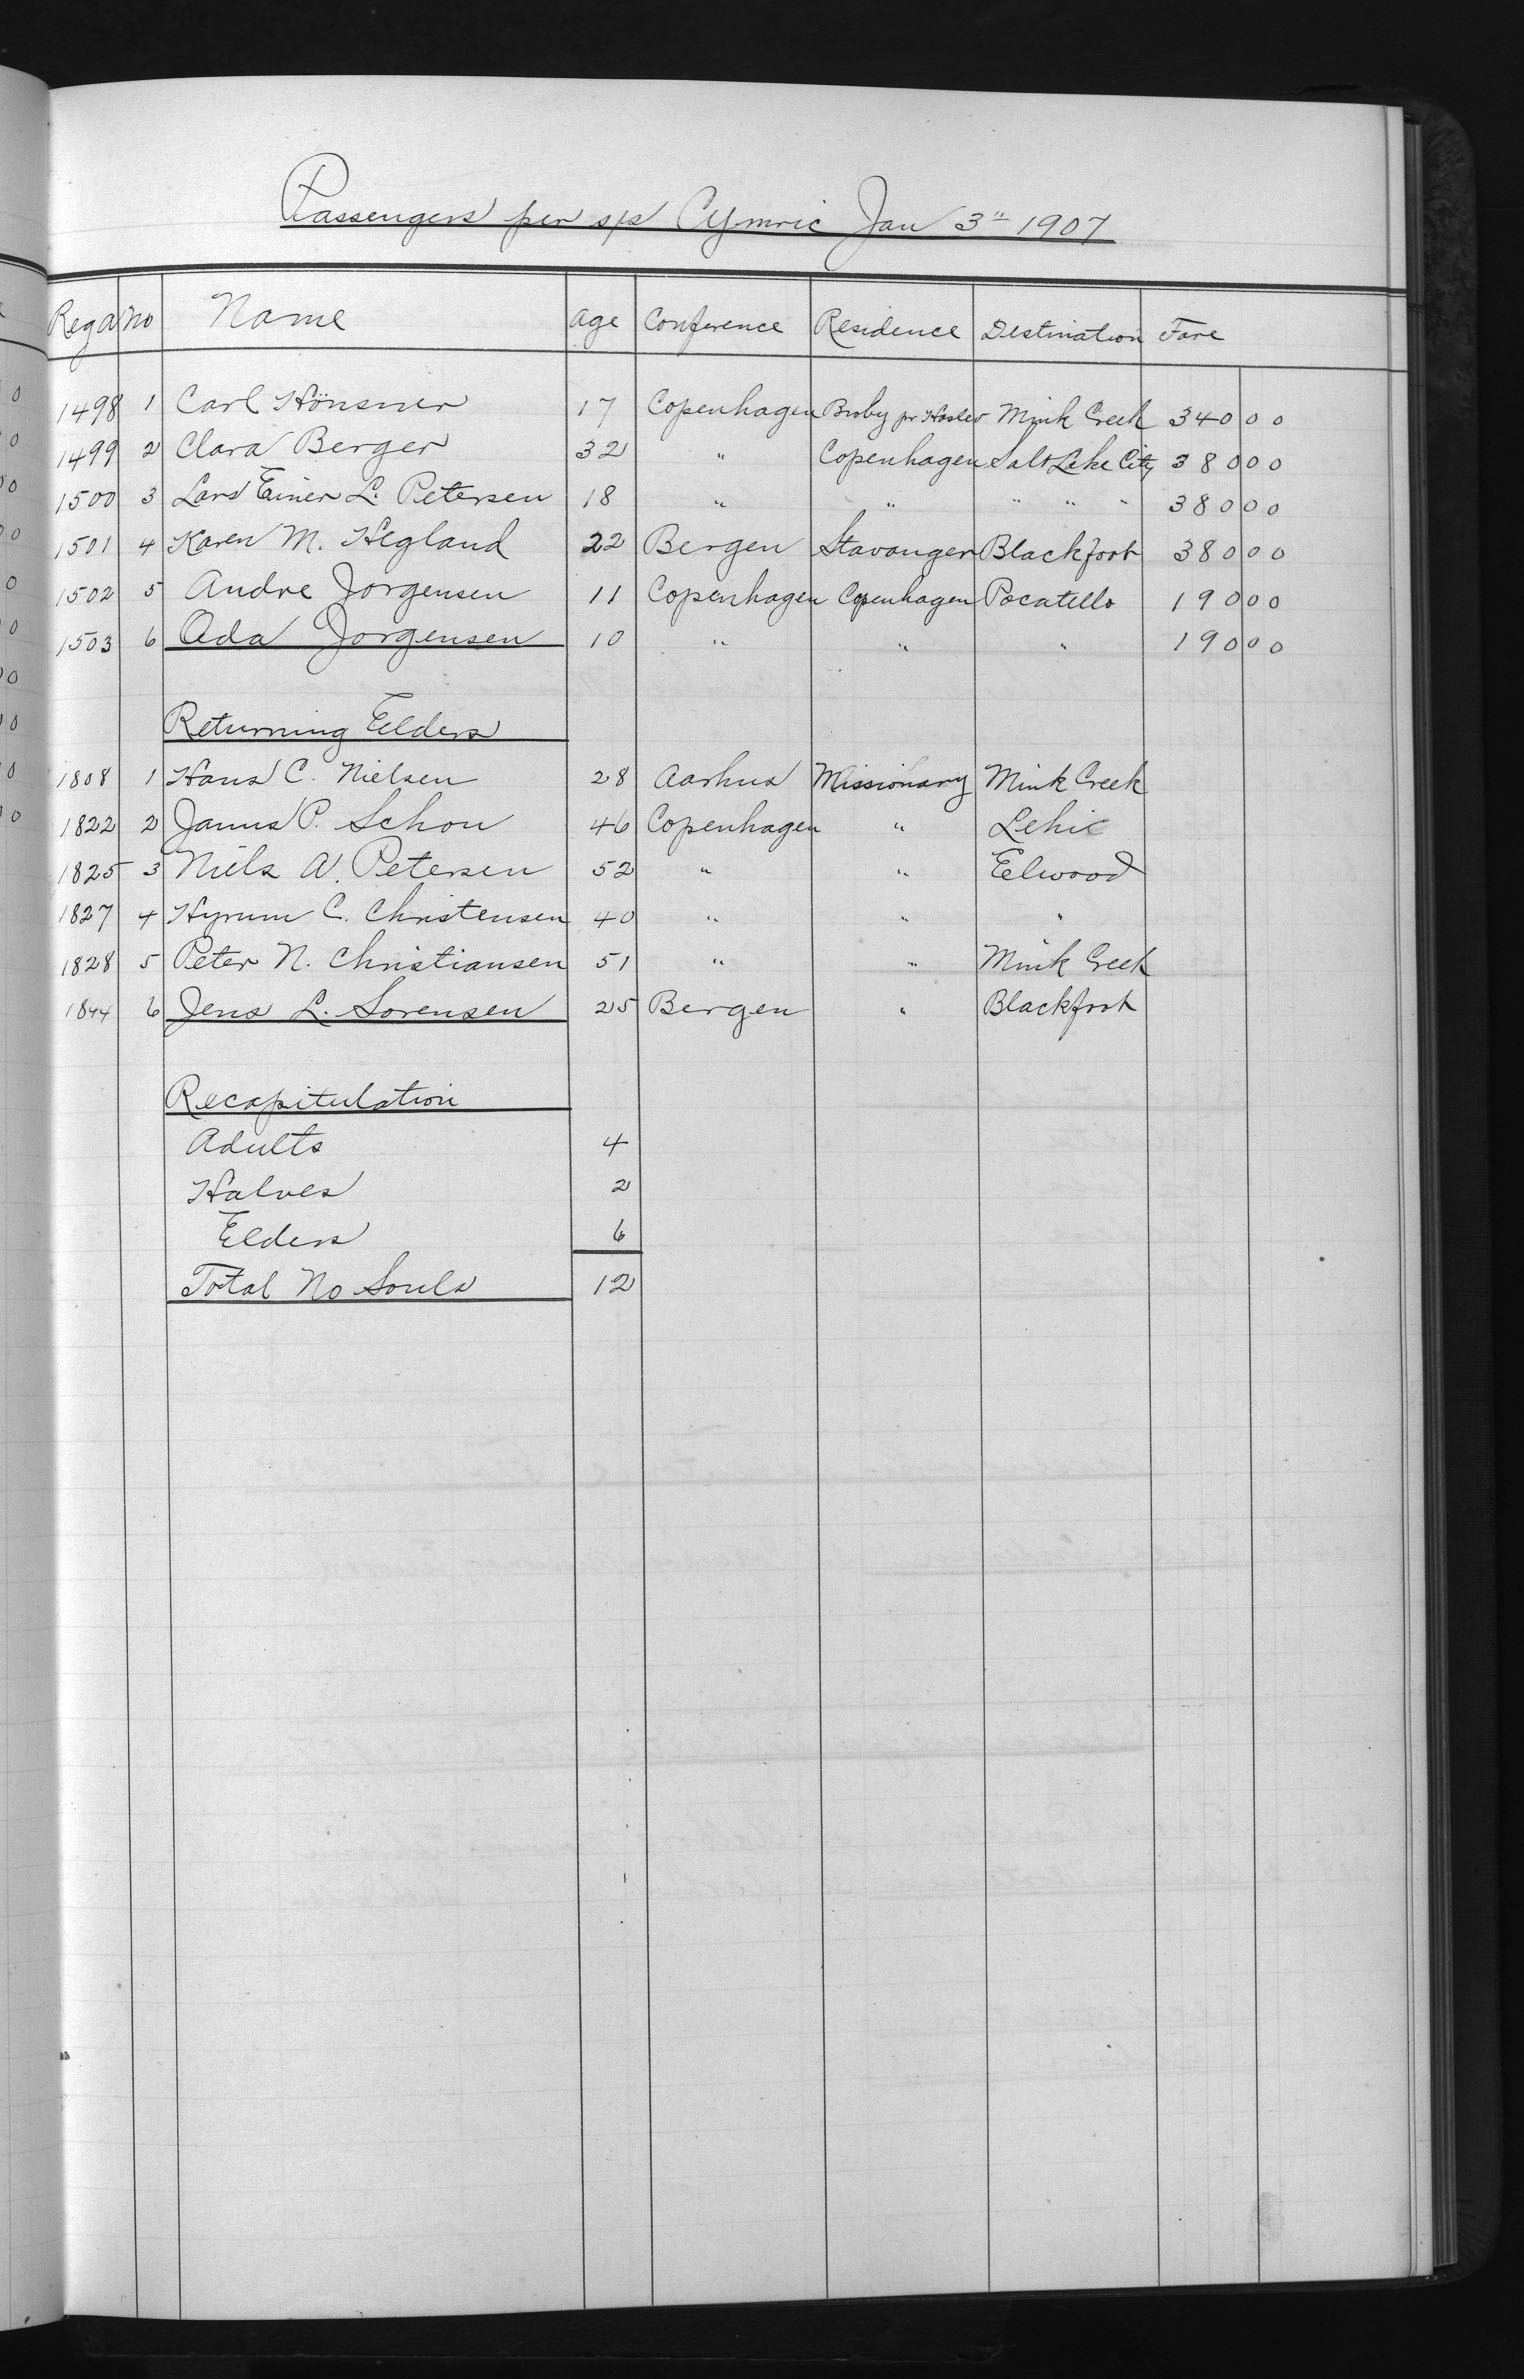 Passengers per s/s Cymric Jan 3" 1907
Rega No Name Age Conference Residence Destination Fare
1498 1 Carl Hönsner 17 Copenhagen Broby pr Haslev Mink Creek 340 00
1499 2 Clara Berger 32 " Copenhagen Salt Lake City 380 00
1500 3 Lars Einer L. Petersen 18 " " " " " 380 00
1501 4 Karen M. Hegland 22 Bergen Stavanger Blackfoot 380 00
1502 5 Andre Jorgensen 11 Copenhagen Copenhagen Pocatello 190 00
1503 6 Ada Jorgensen 10 " " " 190 00
Returning Elders
1808 1 Hans C. Nielsen 28 Aarhus Missionary Mink Creek
1822 2 Janus P. Schou 46 Copenhagen " Lehi
1825 3 Niels A. Petersen 52 " " Elwood
1827 4 Hyrum C. Christensen 40 " " "
1828 5 Peter N. Christiansen 51 " " Mink Creek
1844 6 Jens L. Sorensen 25 Bergen " Blackfoot
Recapitulation
Adults 4
Halves 2
Elders 6
Total No Souls 12